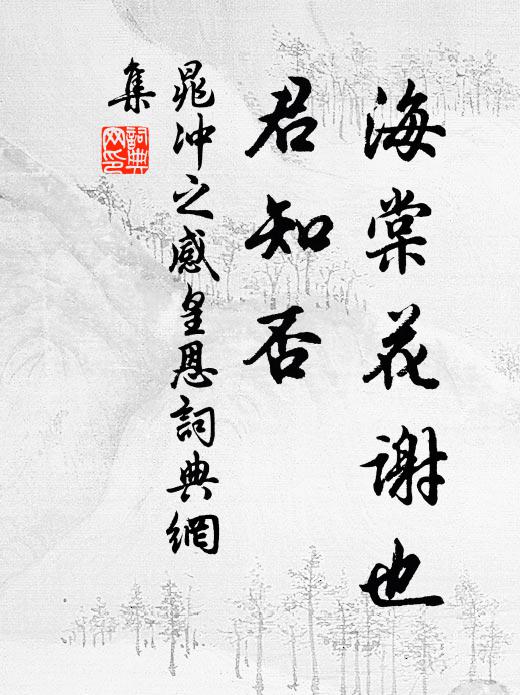 海棠花谢也
君知否
晁冲之感皇恩詞典網
集
詞典網印